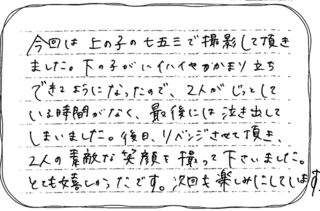 今回は上の子の七五三で撮影して頂き
ました。下の子がハイハイやつかまり立ち
できるようになったので、2人がじっとして
いる時間がなく、最後には泣き出して
しまいました。後日、リベンジさせて頂き、
2人の素敵な笑顔を撮って下さいました。
とても嬉しかったです。次回も楽しみにしています。